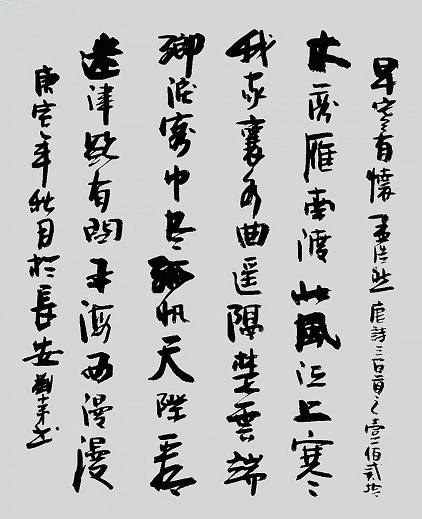 早寒有懷 孟浩然 唐詩三百首之壹佰貳拾
木落雁南渡北風江上寒
我家襄水曲遥隔楚雲端
鄉淚客中尽孤帆天際看
迷津欲有問平海夕漫漫
庚寅年秋月於長安書